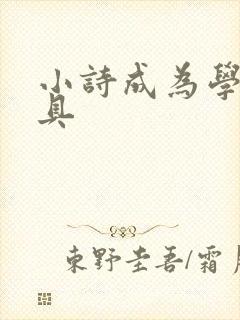 小詩成為學
具
東野圭吾/霜月